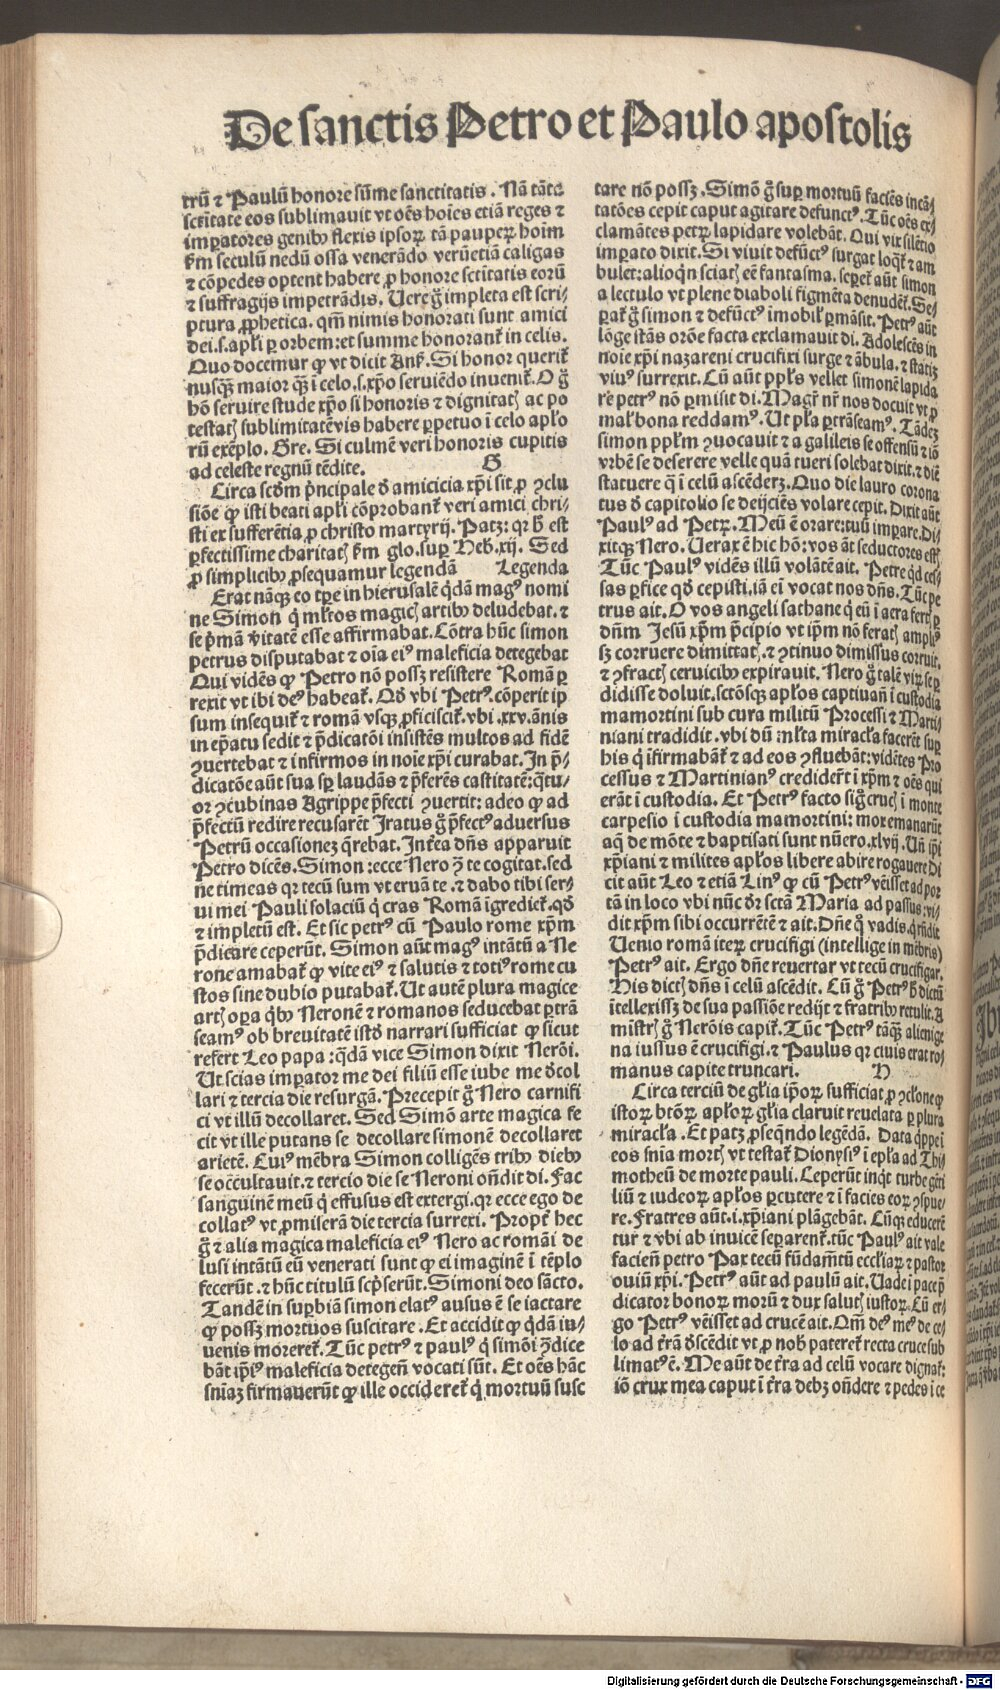 De sanctis Petro et Paulo apostolis
trũ ⁊ Paulũ honore sũme sanctitatis. Nã tãta
sctitate eos sublimauit vt oẽs hoies etiã reges ⁊
impatores genibꝰ flexis ipsoꝝ tã paupeꝝ hoim
fm seculũ nedũ ossa venerãdo verũetiã caligas
⁊ cõpedes optent habere ꝓ honore sctitatis eorũ
⁊ suffragijs impetrãdis. Uere g̃ impleta est scri⸗
ptura ꝓphetica. qm̃ nimis honorati sunt amici
dei.s.apli ꝑ orbem:et summe honorant̃ in celis.
Quo docemur ꝙ vt dicit Ans̃. Si honor querit̃
nusq̃ maior q̃ ĩ celo.s.xp̃o seruiẽdo inuenit̃. O g̃
hõ seruire stude xp̃o si honoris ⁊ dignitatꝭ ac po
testatꝭ sublimitatẽ vis habere ꝑpetuo ĩ celo aplo
rũ exẽplo. Gre. Si culmẽ veri honoris cupitis
ad celeste regnũ tẽdite. G
Circa scd̃m p̃ncipale d̃ amicicia xp̃i sit ꝓ ꝯclu
siõe ꝙ isti beati apl̃i cõprobant̃ veri amici chri⸗
sti ex sufferẽtia ꝓ christo martyrij. Patꝫ: qꝛ h̃ est
ꝑfectissime charitatꝭ fm̃ glo. suꝑ Heb. xij. Sed
ꝓ simplicibꝰ ꝓsequamur legendã Legenda
Erat nãqꝫ eo tꝑe in hierusalẽ q̃dã magꝰ nomi
ne Simon q̃ ml̃tos magicꝭ artibꝰ deludebat. ⁊
se p̃mã ṽitatẽ esse affirmabat. Cõtra hũc simon
petrus disputabat ⁊ oĩa eiꝰ maleficia detegebat
Qui vidẽs ꝙ Petro nõ possꝫ resistere Romã ꝑ
rexit vt ibi deꝰ habeat̃. Qd̃ vbi Petrꝰ. cõperit ip
sum insequit̃ ⁊ romã vsqꝫ ꝓficiscit̃. vbi .xxv. ãnis
in ep̃atu sedit ⁊ p̃dicatõi insistẽs multos ad fidẽ
ꝯuertebat ⁊ infirmos in noie xp̃i curabat. In p̃⸗
dicatõe aũt sua sꝑ laudãs ⁊ p̃ferẽs castitatẽ: q̃tu⸗
or ꝯcubinas Agrippe p̃fecti ꝯuertit: adeo ꝙ ad
p̃fectũ redire recusarẽt Iratus g̃ p̃fectꝰ aduersus
Petrũ occasionez q̃rebat. Int̃ea dñs apparuit
Petro dicẽs. Simon: ecce Nero ꝯ̃ te cogitat. sed
ne timeas qꝛ tecũ sum vt eruã te. ⁊ dabo tibi ser⸗
ui mei Pauli solaciũ q̃ cras Romã ĩgrediet̃. qd̃
⁊ impletũ est. Et sic petrꝰ cũ Paulo rome xp̃m
p̃dicare ceperũt. Simon aũt magꝰ intãtũ a Ne
rone amabat̃ ꝙ vite eiꝰ ⁊ salutis ⁊ totiꝰ rome cu
stos sine dubio putabat̃. Ut autẽ plura magice
artꝭ oꝑa q̃bꝰ Neronẽ ⁊ romanos seducebat ꝑtrã
seamꝰ ob breuitatẽ istd̃ narrari sufficiat ꝙ sicut
refert Leo papa: q̃dã vice Simon dixit Nerõi.
Ut scias impator me dei filiũ esse iube me d̃col
lari ⁊ tercia die resurgã. Precepit g̃ Nero carnifi
ci vt illũ decollaret. Sed Simõ arte magica fe
cit vt ille putans se decollare simonẽ decollaret
arietẽ. Cuiꝰ mẽbra Simon colligẽs tribꝰ diebꝰ
se occũltauit. ⁊ tercio die se Neroni oñdit di. Fac
sanguinẽ meũ q̃ effusus est extergi. qꝛ ecce ego de
collatꝰ vt ꝓmiserã die tercia surrexi. Propt̃ hec
g̃ ⁊ alia magica maleficia eiꝰ Nero ac romãi de
lusi intãtũ eũ venerati sunt ꝙ ei imaginẽ ĩ tẽplo
fecerũt. ⁊ hũc titulũ scp̃serũt. Simoni deo sãcto.
Tandẽ in suꝑbiã simon elatꝰ ausus ẽ se iactare
ꝙ possꝫ mortuos suscitare. Et accidit ꝙ q̃dã iu⸗
uenis moreret̃. Tũc petrꝰ ⁊ paulꝰ q̃ simõi ꝯ̃dice
bãt ip̃iꝰ maleficia detegeñ vocati sũt. Et oẽs hãc
sniaꝫ firmauerũt ꝙ ille occideret̃ q̃ mortuũ susc
tare nõ possꝫ. Simõ g̃ suꝑ mortuũ faciẽs incã⸗
tatões cepit caput agitare defunctꝰ. Tũc oẽs ex⸗
clamãtes petꝝ lapidare volebãt. Qui vix silẽtio
impato dixit. Si viuit defũctꝰ surgat loq̃t̃ ⁊ am
bulet: alioqñ sciatꝭ eẽ fantasma. sepet̃ aũt simon
a lectulo vt plene diaboli figmẽta denudẽt̃. Se⸗
parat̃ g̃ simon ⁊ defũctꝰ imobil̃ ꝑmãsit. Petrꝰ aũt
lõge stãs orõe facta exclamauit di. Adolescẽs in
noie xp̃i nazareni crucifixi surge ⁊ ãbula. ⁊ statiꝫ
viuꝰ surrexit. Cũ aũt ppl̃s vellet simonẽ lapida
re petrꝰ nõ ꝑmisit di. Magr̃ nr̃ nos docuit vt ꝓ
mal̃ bona reddamꝰ. Ut pl̃a ꝑtrãseamꝰ. Tãdeꝫ
simon ppl̃m ꝯuocauit ⁊ a galileis se offensũ ⁊ iõ
vrbẽ se deserere velle quã tueri solebat dixit. ⁊ diẽ
statuere q̃ ĩ celũ ascẽderꝫ. Quo die lauro corona
tus d̃ capitolio se deijciẽs volare cepit. Dixit aũt
Paulꝰ ad Petꝝ. Meũ ẽ orare: tuũ impare. Di
xitqꝫ Nero. Uerax ẽ hic hõ: vos ãt seductores estꝭ.
Tũc Paulꝰ vidẽs illũ volãtẽ ait. Petre q̃d ces⸗
sas ꝑfice qd̃ cepisti. iã eĩ vocat nos dñs. Tũc pe
trus ait. O vos angeli sathane q̃ eũ ĩ aera fertꝭ ꝑ
dñm Jesũ xp̃m p̃cipio vt ip̃m nõ feratꝭ ampliꝰ
sꝫ corruere dimittatꝭ. ⁊ ꝯtinuo dimissus corruit.
⁊ ꝯfractꝭ ceruicibꝰ expirauit. Nero g̃ talẽ viꝝ se ꝑ
didisse doluit. sctõsqꝫ apl̃os captiuañ ĩ custodia
mamortini sub cura militũ Processi ⁊ Marti⸗
niani tradidit. vbi dũ ml̃ta miracl̃a facerẽt suꝑ
his q̃ ĩfirmabãt̃ ⁊ ad eos ꝯfluebãt: vidẽtes Pro
cessus ⁊ Martinianꝰ crediderũt ĩ xp̃m ⁊ oẽs qui
erãt ĩ custodia. Et Petrꝰ facto sig̃ crucꝭ ĩ monte
carpesio ĩ custodia mamortini: mox emanarũt
aq̃ de mõte ⁊ baptisati sunt nũero. xlvij. Uñ ip̃i
xp̃iani ⁊ milites apl̃os libere abire rogauere Di
cit aũt Leo ⁊ etiã Linꝰ ꝙ cũ Petrꝰ vẽisset ad por
tã in loco vbi nũc d̃r sctã Maria ad passus: vi⸗
dit xp̃m sibi occurrẽtẽ ⁊ ait. Dñe q̃ vadis. q̃ rñdit
Uenio romã iteꝝ crucifigi (intellige in mẽbris)
Petrꝰ ait. Ergo dñe reuertar vt tecũ crucifigar.
His dictꝭ dñs ĩ celũ ascẽdit. Cũ g̃ Petrꝰ h̃ dictũ
ĩtellexissꝫ de sua passiõe redijt ⁊ fratribꝰ retulit. A
mĩstrꝭ g̃ Nerõis capit̃. Tũc Petrꝰ tãq̃ alienige
na iussus ẽ crucifigi. ⁊ Paulus qꝛ ciuis erat ro⸗
manus capite truncari. H
Circa terciũ de gl̃ia ip̃oꝝ sufficiat ꝓ ꝯcl̃one ꝙ
istoꝝ btõꝝ apl̃oꝝ gl̃ia claruit reuelata ꝑ plura
miracl̃a. Et patꝫ ꝓseq̃ndo legẽdã. Data q̃ppe ĩ
eos snĩa mortꝭ vt testat̃ Dionysiꝰ ĩ ep̃la ad Thi
motheũ de morte pauli. Ceperũt inq̃t turbe gẽti
liũ ⁊ iudeoꝝ apl̃os ꝑcutere ⁊ ĩ facies eoꝝ ꝯspue⸗
re. Fratres aũt. i. xp̃iani plãgebãt. Cũqꝫ educerẽ
tur ⁊ vbi ab inuicẽ separent̃. tũc Paulꝰ ait vale
facieñ petro Pax tecũ fũdam̃tũ eccl̃iaꝝ ⁊ pastor
ouiũ xp̃i. Petrꝰ aũt ad paulũ ait. Uade ĩ pace p̃
dicator bonoꝝ morũ ⁊ dux salutꝭ iustoꝝ. Cũ er⸗
go Petrꝰ vẽisset ad crucẽ ait. Qm̃ deꝰ meꝰ de ce⸗
lo ad t̃rã d̃scẽdit vt ꝓ nob̃ pateret̃ recta cruce sub
limatꝰ ẽ. Me aũt de t̃ra ad celũ vocare dignat̃:
iõ crux mea caput ĩ t̃ra debꝫ oñdere ⁊ pedes ĩ ce
Digitalisierung gefördert durch die Deutsche Forschungsgemeinschaft - DFG